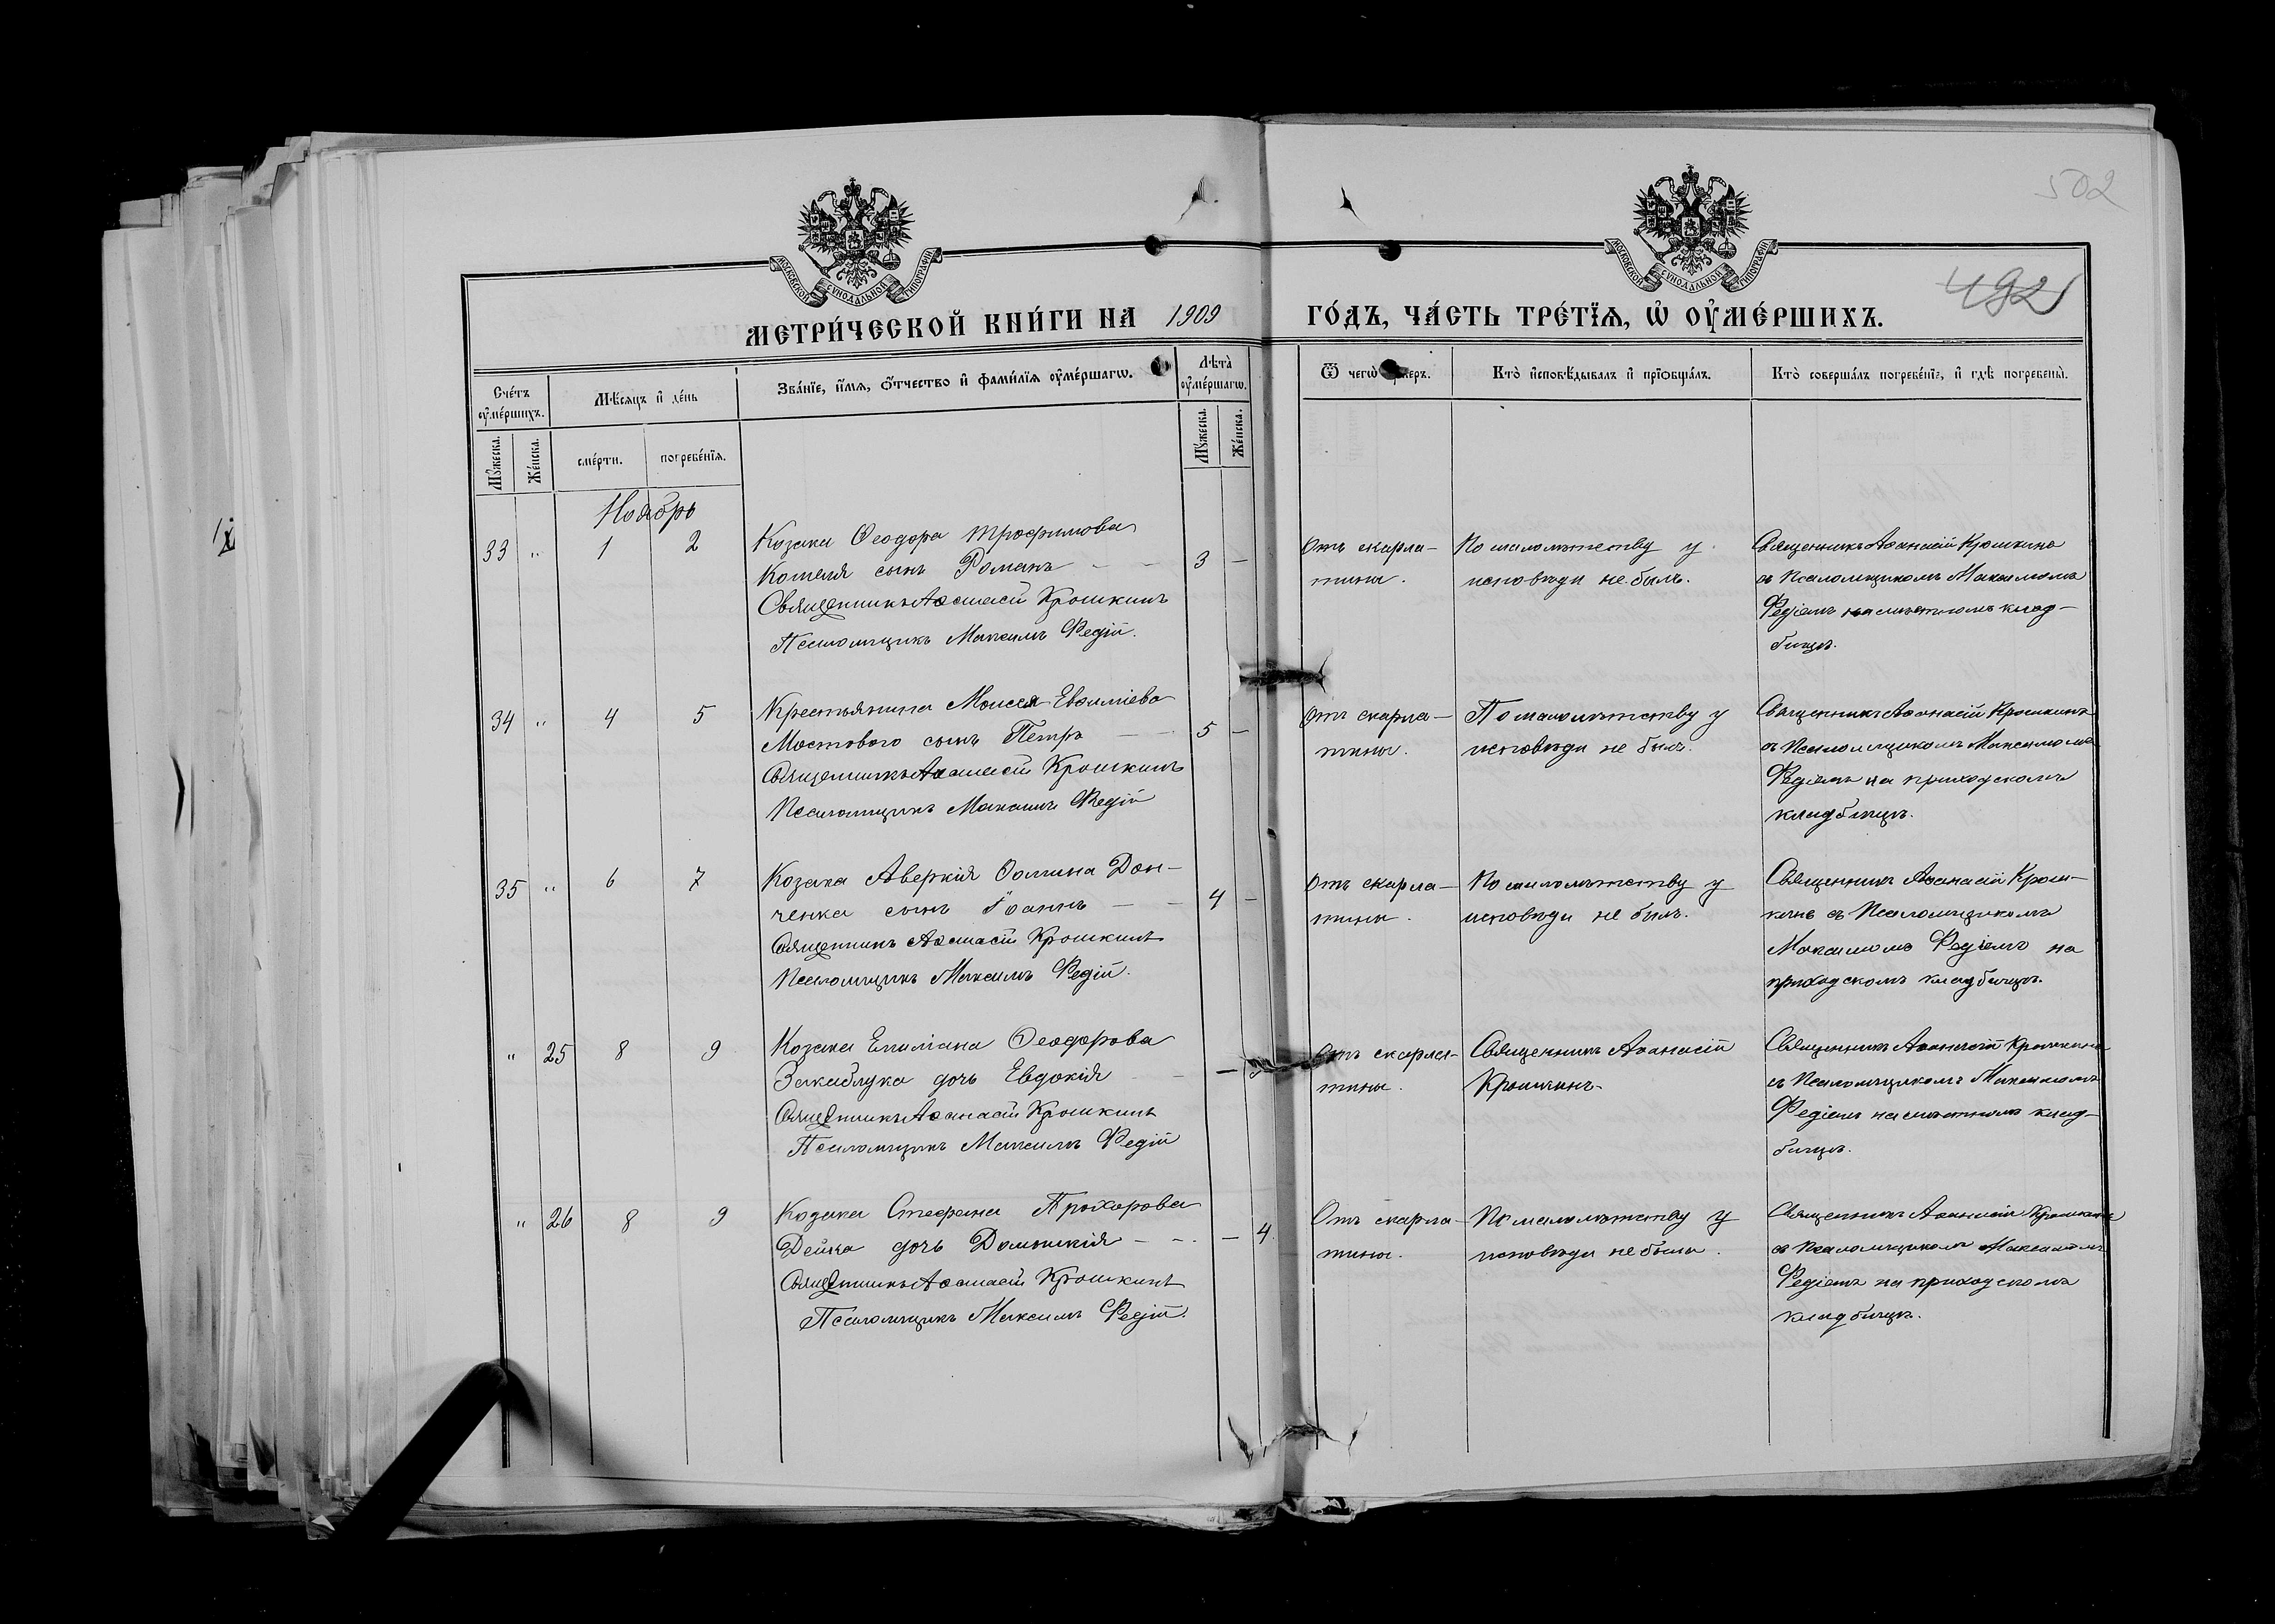 502
492
МОСКОВСКОЙ СѴНОДАЛЬНОЙ ТИПОГРАФІИ
МОСКОВСКОЙ СѴНОДАЛЬНОЙ ТИПОГРАФІИ
МЕТРИ́ЧЕСКОЙ КНИ́ГИ НА 1909 ГО́ДЪ, ЧА́СТЬ ТРЕ́ТЇѦ, Ѽ ОУ҆МЕ́РШИХЪ.
Сче́тъ оу҆ме́ршихъ.
Мꙋ́жеска.
Же́нска.
Мѣ́сѧцъ и҆ де́нь
сме́рти.
погребе́нїѧ.
Зва́нїе, и҆́мѧ, ѻ҆́тчество и҆ фами́лїѧ оу҆ме́ршагѡ.
Лѣ̑та оу҆ме́ршагѡ.
Мꙋ́жеска.
Же́нска.
Ѿ чегѡ̀ оу҆́меръ.
Кто̀ и҆сповѣ́дывалъ и҆ прїѡбща́лъ.
Кто̀ соверша́лъ погребе́нїе, и҆ гдѣ̀ погребены̀.
Ноябрь
33 " 1 2
Козака Ѳеодора Трофимова
Котеля сынъ Романъ — —
Священникъ Аѳанасій Крошкинъ
Псаломщикъ Максимъ Редій.
3 —
Отъ скарла-
тины.
По малолѣтству у
исповѣди не былъ.
Священникъ Аѳанасій Крошкинъ
съ Псаломщикомъ Максимомъ
Редіемъ на мѣстномъ клад-
бищѣ.
34 " 4 5
Крестьянина Моисея Евѳиміева
Мостового сынъ Петръ — —
Священникъ Аѳанасій Крошкинъ
Псаломщикъ Максимъ Редій
5 —
Отъ скарла-
тины.
По малолѣтству у
исповѣди не былъ.
Священникъ Аѳанасій Крошкинъ
съ Псаломщикомъ Максимомъ
Редіемъ на приходскомъ
кладбищѣ.
35 " 6 7
Козака Аверкія Ѳомина Дон-
ченка сынъ Іоаннъ — —
Священникъ Аѳанасій Крошкинъ
Псаломщикъ Максимъ Редій.
4 —
Отъ скарла-
тины.
По малолѣтству у
исповѣди не былъ.
Священникъ Аѳанасій Крош-
кинъ съ Псаломщикомъ
Максимомъ Редіемъ на
приходскомъ кладбищѣ.
" 25 8 9
Козака Ѳеодорова
Закаблука дочь Евдокія — —
Священникъ Аѳанасій Крошкинъ
Псаломщикъ Максимъ Редій
—
Отъ скарла-
тины.
Священникъ Аѳанасій
Крошкинъ.
Священникъ Аѳанасій Крошкинъ
съ Псаломщикомъ Максимомъ
Редіемъ на мѣстномъ клад-
бищѣ.
" 26 8 9
Козака Стефана Прохорова
Дейка дочь Домникія — —
Священникъ Аѳанасій Крошкинъ
Псаломщикъ Максимъ Редій.
— 4
Отъ скарла-
тины.
По малолѣтству у
исповѣди не была.
Священникъ Аѳанасій Крошкинъ
съ Псаломщикомъ Максимомъ
Редіемъ на приходскомъ
кладбищѣ.